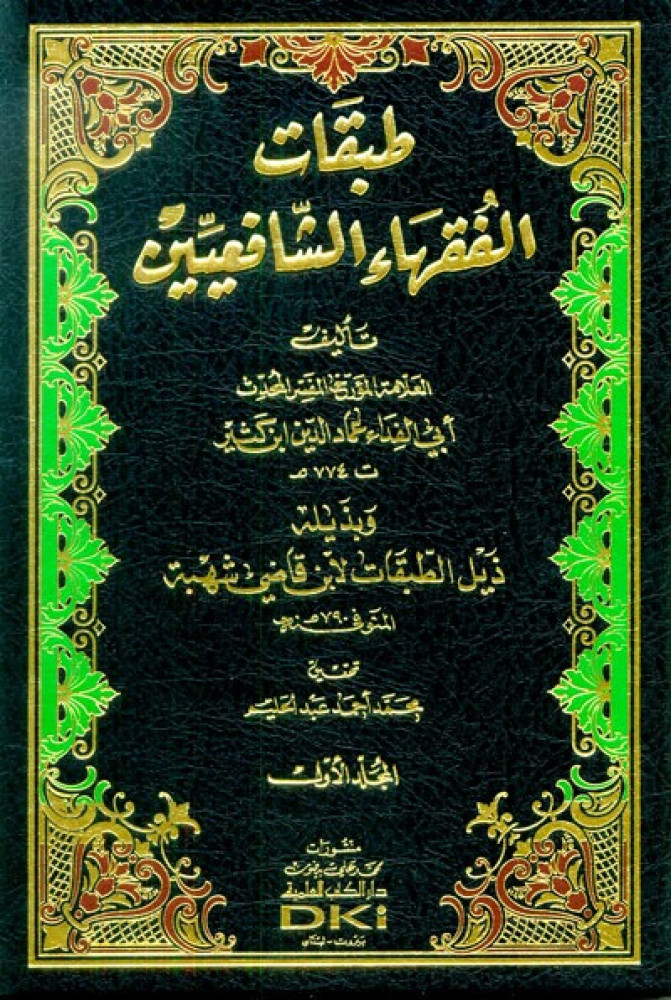 طبقات
الفُقهاء الشّافعيّين
تأليف
العلامة المؤرخ المفسر المحدث
أبي الفداء عماد الدين ابن كثير
ت ٧٧٤ هـ
وبذيله
ذيل الطبقات لابن قاضي شهبة
المتوفى سنة ٧٩٠ هـ
تحقيق
محمد أحمد عبد الحليم
المجلد الأول
منشورات
محمد علي بيضون
دار الكتب العلمية
DKi
بيروت - لبنان